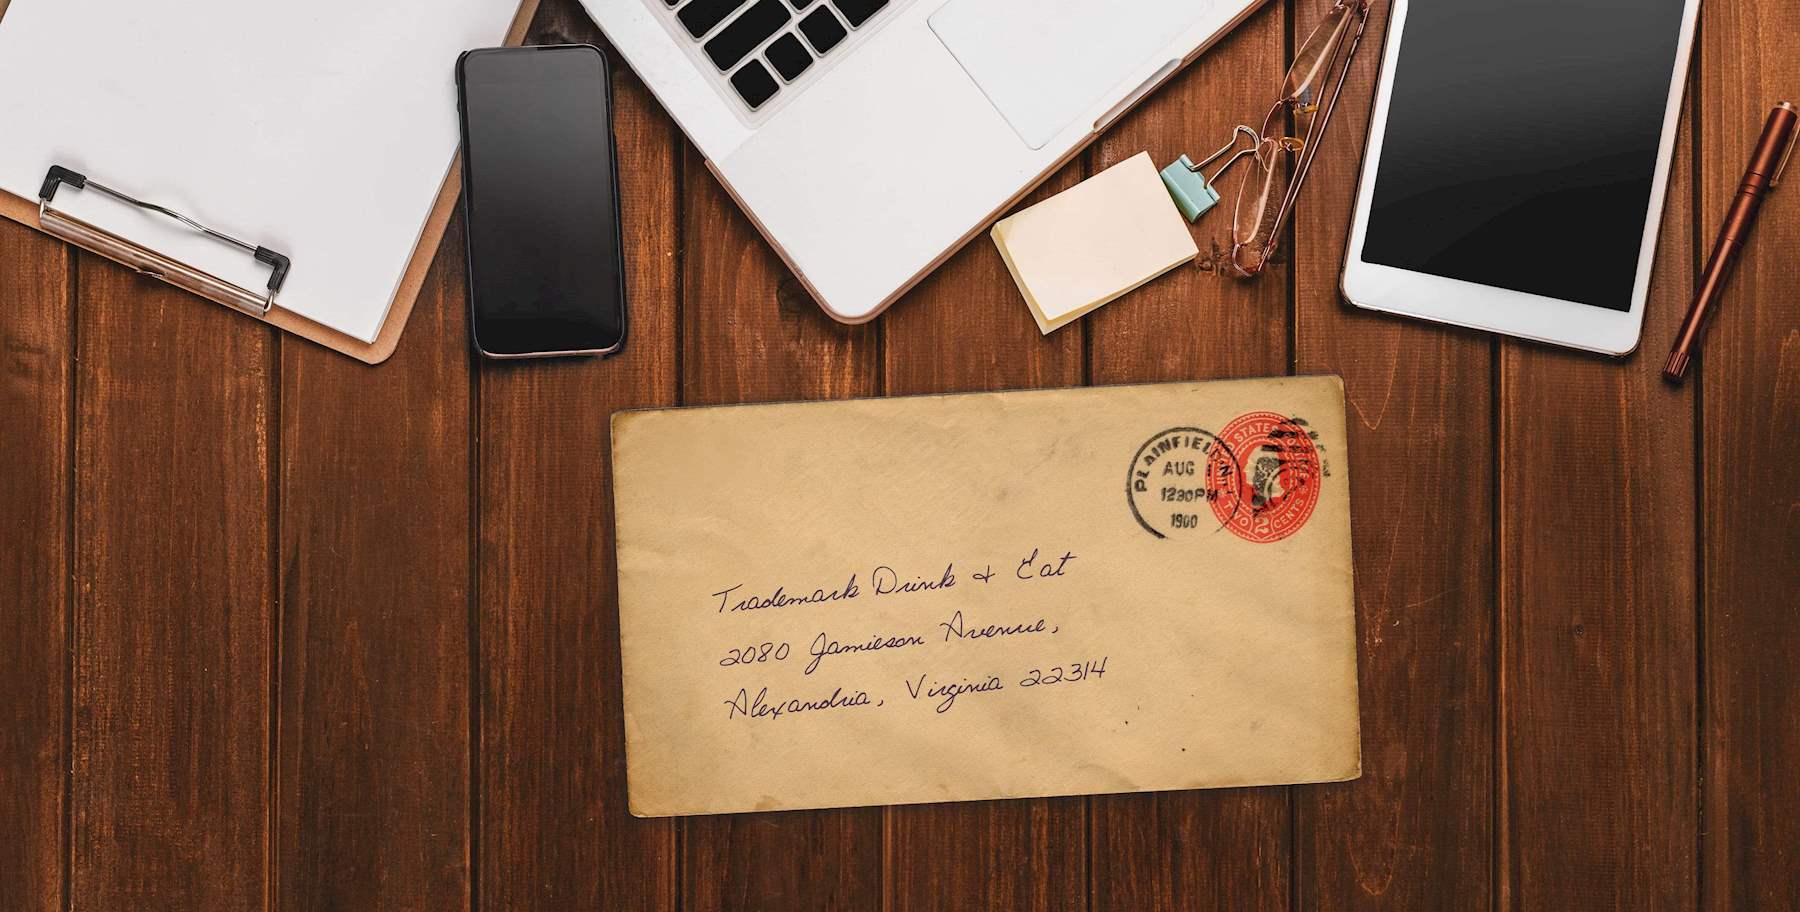 PLAINFIEL N.J.
AUG
1230PM
1900
STATES O
TWO 2 CENTS
Trademark Drink & Eat
2080 Jamieson Avenue,
Alexandria, Virginia 22314